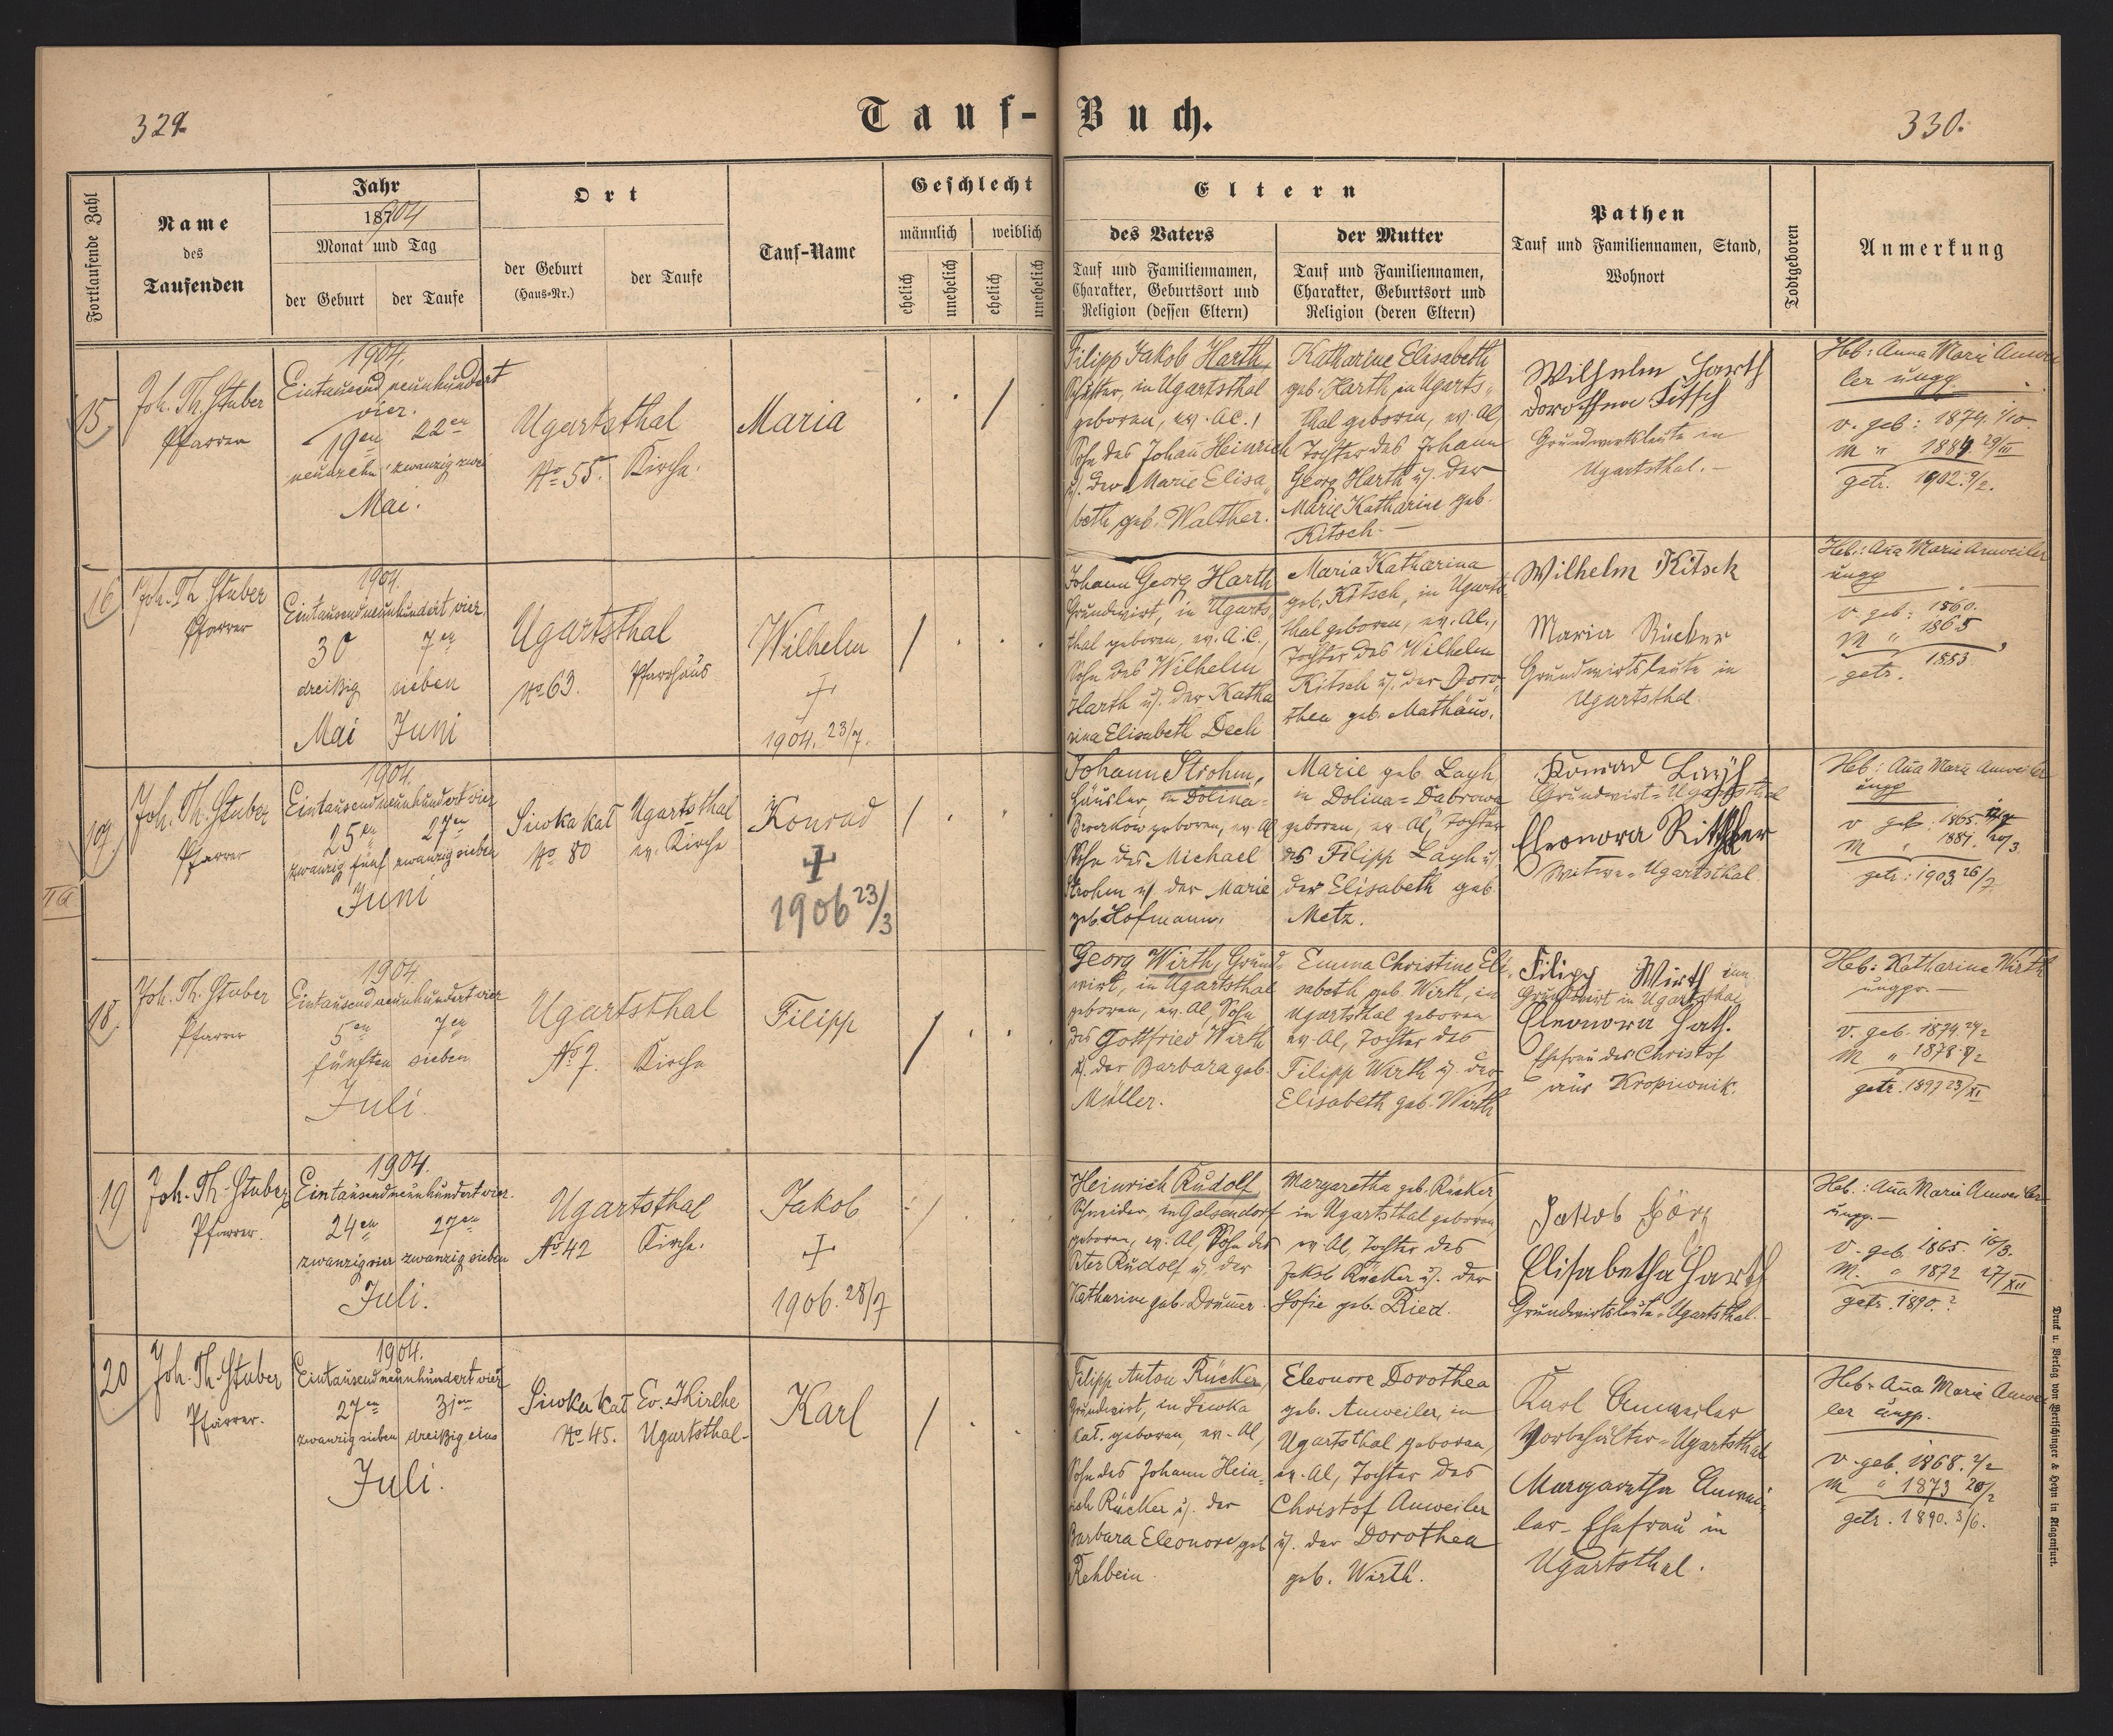 329.
Tauf-Buch.
330.
Fortlaufende Zahl
Name
des
Taufenden
Jahr
187
904
Monat und Tag
der Geburt
der Taufe
Ort
der Geburt
(Haus-Nr.)
der Taufe
Tauf-Name
Geschlecht
männlich
weiblich
ehelich
unehelich
ehelich
unehelich
Eltern
des Vaters
Tauf und Familiennamen,
Charakter, Geburtsort und
Religion (dessen Eltern)
der Mutter
Tauf und Familiennamen,
Charakter, Geburtsort und
Religion (deren Eltern)
Pathen
Tauf und Familiennamen, Stand,
Wohnort
Todtgeboren
Anmerkung
15
Joh. Th. Stuber
Pfarrer
1904.
Eintausend neunhundert
vier.
19en 22en
neunzehn zwanzig zwei
Mai.
Ugartsthal
No 55. Kirche.
Maria
/
Filipp Jakob Harth,
in Ugartsthal
geboren, ev. A.C.,
Sohn des Johann Heinrich
u. der Marie Elisa
beth geb. Walther.
Katharine Elisabeth
geb. Harth, in Ugarts-
thal geboren, ev. Al,
Tochter des Johann
Georg Harth u. der
Marie Katharine geb.
Kitsch.
Wilhelm Harth
Dorothea Kitsch
Grundwirtsleute in
Ugartsthal.
Heb: Anna Marie Anwei
ler ungg.
v. geb: 1879. 1/10
M " 1884 29/III
getr. 1902. 9/2.
16
Joh. Th. Stuber
Pfarrer
1904.
Eintausendneunhundert vier
30 7en
dreißig sieben
Mai Juni
Ugartsthal
No 63. Pfarrhaus
Wilhelm
+
1904. 23/7.
/
Johann Georg Harth
Grundwirt, in Ugarts
thal geboren, ev. A.C.,
Sohn des Wilhelm
Harth u. der Katha
rina Elisabeth Dech
Maria Katharina
geb. Kitsch, in Ugarts
thal geboren, ev. Al.,
Tochter des Wilhelm
Kitsch u. der Doro
thea geb. Mathäus.
Wilhelm Kitsch
Maria Rücker
Grundwirtsleute in
Ugartsthal
Heb.: Ana Marie Anweiler
ungg
v. geb: 1860.
M " 1865
getr. 1883
Joh. Th. Stuber
Pfarrer
1904.
Eintausendneunhundert vier
25en 27en
zwanzig fünf zwanzig sieben
Juni
Siwka kat
No 80
Ugartsthal
ev. Kirche
Konrad
+
1906 23/3
/
Johann Strohm,
Häusler, in Dolina-
geboren, ev. Al
Sohn des Michael
Strohm u. der Marie
geb. Hofmann.
Marie geb. Layh
in Dolina-Dabrowa
geboren, ev. Al, Tochter
des Filipp Layh u
der Elisabeth geb.
Metz.
Konrad Layh
Grundwirt-Ugartsthal
Eleonora Ritthaler
Witwe-Ugartsthal
Heb: Ana Marie Anweiler
ungg
v geb. 1865.
M " 1881. 20/3
getr: 1903. 26/7
18
Joh. Th. Stuber
Pfarrer
1904.
Eintausendneunhundert vier
5en 7en
fünften sieben
Juli.
Ugartsthal
No 7. Kirche
Filipp
/
Georg Wirth, Grund-
wirt, in Ugartsthal
geboren, ev. Al, Sohn
des Gottfried Wirth
u. der Barbara geb.
Müller.
Emma Christine Eli
sabeth geb. Wirth, in
Ugartsthal geboren
ev. Al, Tochter des
Filipp Wirth u. der
Elisabeth geb. Wirth
Filipp Wirth jun
Grundwirt in Ugartsthal
Eleonora Hath.
Ehefrau des Christof
aus Kropiwnik.
Heb: Katharine Wirth
unggr.
v. geb. 1874 24/2
M " 1878 8/2
getr. 1897 23/XI
19
Joh. Th. Stuber
Pfarrer.
1904.
Eintausendneunhundert vier.
24en 27en
zwanzig vier zwanzig sieben
Juli.
Ugartsthal
No 42 Kirche.
Jakob
+
1906. 28/7
/
Heinrich Rudolf,
Schneider, in Gelsendorf
geboren, ev. Al, Sohn des
Peter Rudolf u. der
Katharine geb. Drumer.
Margaretha geb. Rücker
in Ugartsthal geboren,
ev. Al, Tochter des
Jakob Rücker u. der
Sofie geb. Ried.
Jakob Görz
Elisabetha Harth
Grundwirtsleute-Ugartsthal.
Heb.: Ana Marie Anweiler
ungg.
v. geb. 1865. 16/3.
M. " 1872 27/XII
getr. 1890. ?
20
Joh. Th. Stuber
Pfarrer.
1904.
Eintausendneunhundert vier
27en 31en
zwanzig sieben dreißig eins
Juli.
Siwka kat
No 45.
Ev. Kirche
Ugartsthal-
Karl
/
Filipp Anton Rücker,
Grundwirt, in Siwka
kat. geboren, ev. Al,
Sohn des Johann Hein-
rich Rücker u. der
Barbara Eleonore geb
Rehbein.
Eleonore Dorothea
geb. Anweiler, in
Ugartsthal geboren,
ev. Al, Tochter des
Christof Anweiler
u. der Dorothea
geb. Wirth.
Karl Anweiler
Vorbehälter-Ugartsthal
Margaretha Anwei-
ler- Ehefrau in
Ugartsthal.
Heb- Ana Marie Anwei
ler ungg.
v. geb. 1868. 2/2
M " 1873 20/2
getr. 1890. 3/6.
Druck u. Verlag von Bertschinger & Heyn in Klagenfurt.